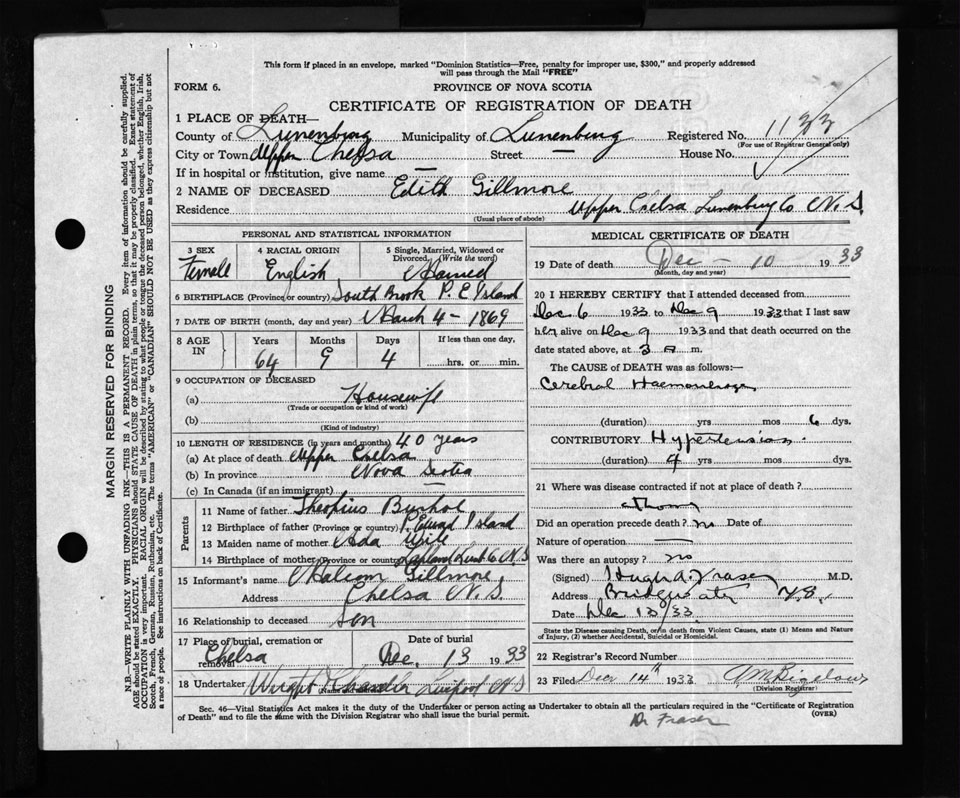 This form if placed in an envelope, marked "Dominion Statistics—Free, penalty for improper use, $300," and properly addressed
will pass through the Mail "FREE"
FORM 6.
PROVINCE OF NOVA SCOTIA
CERTIFICATE OF REGISTRATION OF DEATH
1 PLACE OF DEATH—
County of Lunenburg Municipality of Lunenburg Registered No. 1133
(For use of Registrar General only)
City or Town Upper Chelsa Street — House No.
If in hospital or institution, give name —
2 NAME OF DECEASED Edith Gillmore
Residence Upper Chelsa Lunenburg Co N.S.
(Usual place of abode)
PERSONAL AND STATISTICAL INFORMATION
3 SEX 4 RACIAL ORIGIN 5 Single, Married, Widowed or
Divorced (Write the word)
Female English Maried
6 BIRTHPLACE (Province or country) South Brook P. E Island
7 DATE OF BIRTH (month, day and year) March 4 - 1869
8 AGE IN Years Months Days If less than one day,
64 9 4 hrs. or min.
9 OCCUPATION OF DECEASED
(a) Housewife
(Trade or occupation or kind of work)
(b)
(Kind of industry)
10 LENGTH OF RESIDENCE (in years and months) 40 years
(a) At place of death Upper Chelsa
(b) In province Nova Scotia
(c) In Canada (if an immigrant) —
Parents
11 Name of father Theopius
12 Birthplace of father (Province or country) P. Edward Island
13 Maiden name of mother Ada
14 Birthplace of mother (Province or country) Co N.S
15 Informant's name Gillmore
Address Chelsa N.S.
16 Relationship to deceased son
17 Place of burial, cremation or removal Date of burial
Chelsa Dec. 13 1933
18 Undertaker Wright Chandler Liverpool N.S
MEDICAL CERTIFICATE OF DEATH
19 Date of death Dec - 10 1933
(Month, day and year)
20 I HEREBY CERTIFY that I attended deceased from
Dec 6 1933 to Dec 9 1933 that I last saw
her alive on Dec 9 1933 and that death occurred on
date stated above, at 3 a m.
The CAUSE OF DEATH was as follows:—
Cerebral Haemorrhage
(duration) yrs mos 6 dys.
CONTRIBUTORY Hypertension.
(duration) 4 yrs mos dys.
21 Where was disease contracted if not at place of death?
at home
Did an operation precede death? no Date of
Nature of operation —
Was there an autopsy? no
(Signed) Hugh A. Fraser M.D.
Address Bridgewater N.S.
Date Dec 13/33
State the Disease causing Death, or in death from Violent Causes, state (1) Means and Nature
of Injury, (2) whether Accidental, Suicidal or Homicidal.
22 Registrar's Record Number
23 Filed Decr 14th 1933 Bigelow
(Division Registrar)
Sec. 46—Vital Statistics Act makes it the duty of the Undertaker or person acting as Undertaker to obtain all the particulars required in the "Certificate of Registration
of Death" and to file the same with the Division Registrar who shall issue the burial permit.
(OVER)
Dr Fraser
MARGIN RESERVED FOR BINDING
N.B.—WRITE PLAINLY WITH UNFADING INK—THIS IS A PERMANENT RECORD. Every item of information should be carefully supplied.
AGE should be stated EXACTLY. PHYSICIANS should STATE CAUSE OF DEATH in plain terms, so that it may be properly classified. Exact statement of
OCCUPATION is very important. RACIAL ORIGIN will be described by stating to what people or tongue the deceased person belonged, whether English, Irish,
Scotch, French, German, Russian, Ruthenian, etc. The terms "AMERICAN" or "CANADIAN" SHOULD NOT BE USED as they express citizenship but not
a race of people. See instructions on back of Certificate.